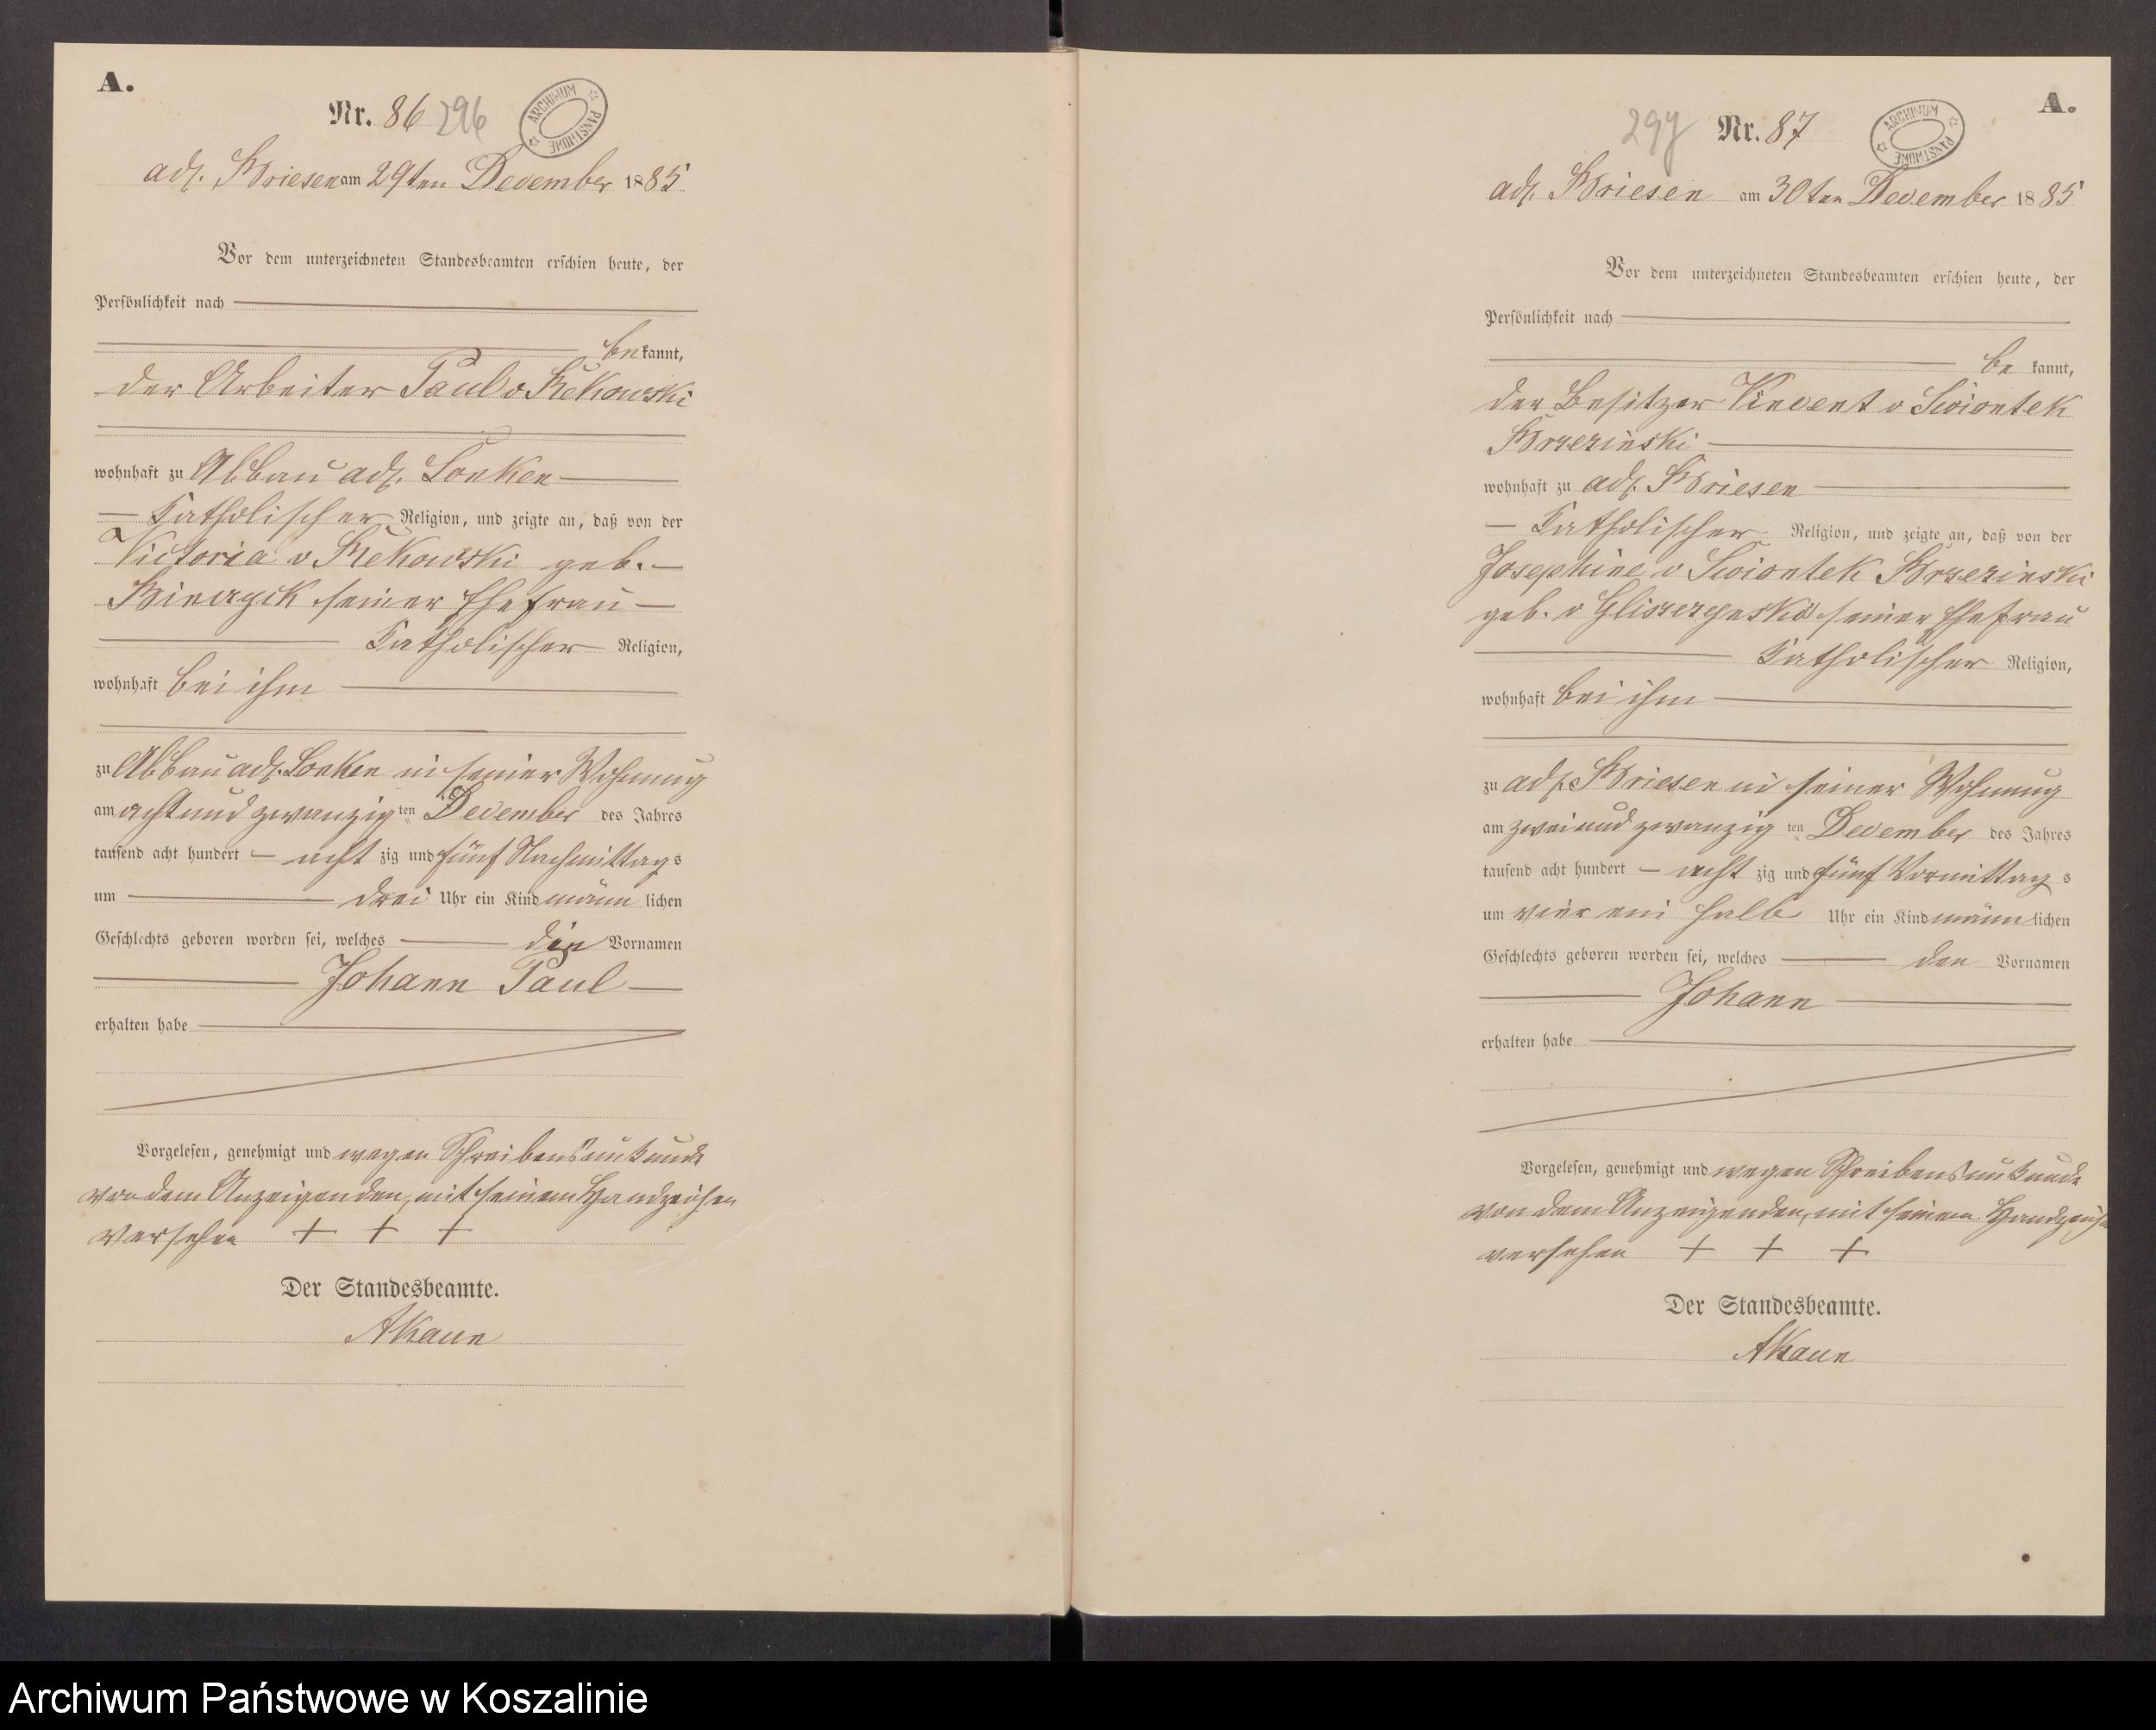 A.
Nr. 86 296
ARCHIWUM PAŃSTWOWE
adl. Briesen am 29ten December 1885.
Vor dem unterzeichneten Standesbeamten erschien heute, der
Persönlichkeit nach
bekannt,
der Arbeiter Paul v Rekowski
wohnhaft zu Abbau adl. Lonken
Katholischer Religion, und zeigte an, daß von der
Victoria v Rekowski geb.
seiner Ehefrau
Katholischer Religion,
wohnhaft bei ihm
zu Abbau adl. Lonken in seiner Wohnung
am acht und zwanzigten December des Jahres
tausend acht hundert acht zig und fünf Nachmittags
um drei Uhr ein Kind männlichen
Geschlechts geboren worden sei, welches die Vornamen
Johann Paul
erhalten habe
Vorgelesen, genehmigt und wegen Schreibensunkunde
von dem Anzeigenden, mit seinem Handzeichen
versehen + + +
Der Standesbeamte.
AKaun
A.
297 Nr. 87
ARCHIWUM PAŃSTWOWE
adl. Briesen am 30ten December 1885
Vor dem unterzeichneten Standesbeamten erschien heute, der
Persönlichkeit nach
be kannt,
der Besitzer Vincent v Swiontek
Brzezinski
wohnhaft zu adl. Briesen
Katholischer Religion, und zeigte an, daß von der
Josephine v Swiontek Brzezinski
geb. v seiner Ehefrau
Katholischer Religion,
wohnhaft bei ihm
zu adl. Briesen in seiner Wohnung
am zwei und zwanzig ten December des Jahres
tausend acht hundert acht zig und fünf Vormittags
um vier ein halb Uhr ein Kind männlichen
Geschlechts geboren worden sei, welches den Vornamen
Johann
erhalten habe
Vorgelesen, genehmigt und wegen Schreibensunkunde
von dem Anzeigenden, mit seinem Handzeichen
versehen + + +
Der Standesbeamte.
AKaun
Archiwum Państwowe w Koszalinie